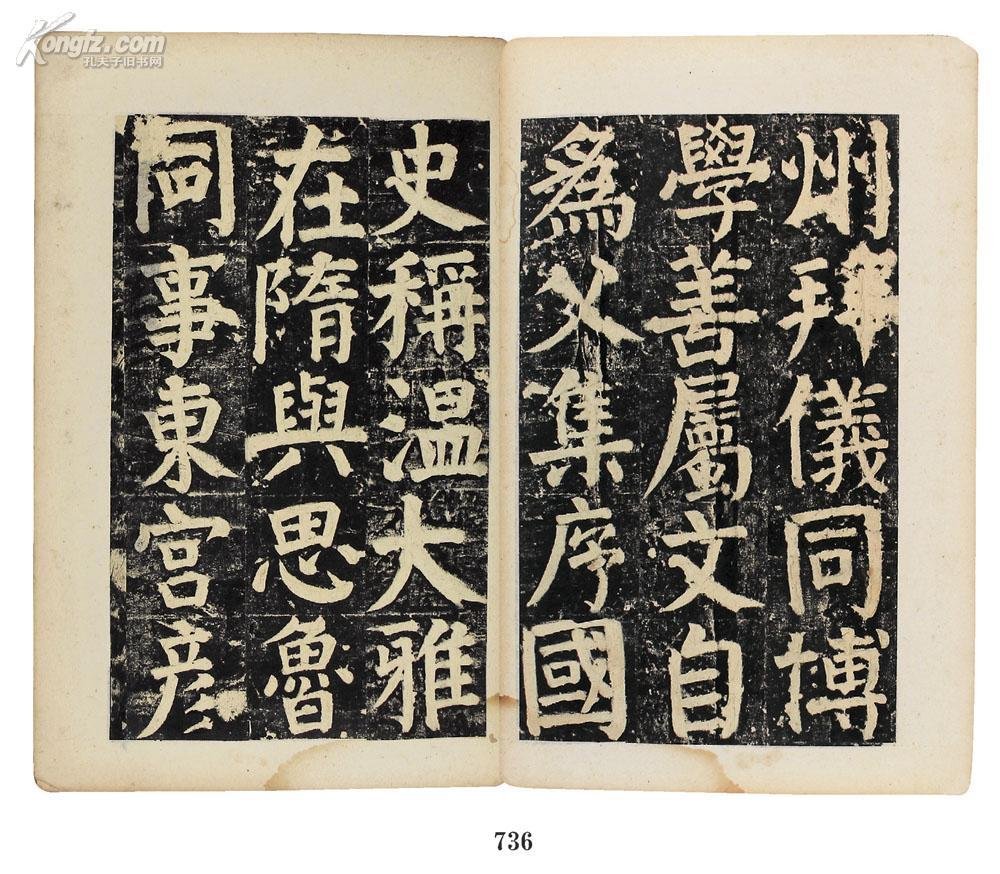 Kongfz.com
孔夫子旧书网
州拜儀同博
學善屬文自
為父集序國
史稱溫大雅
在隋與思魯
同事東宮彦
736